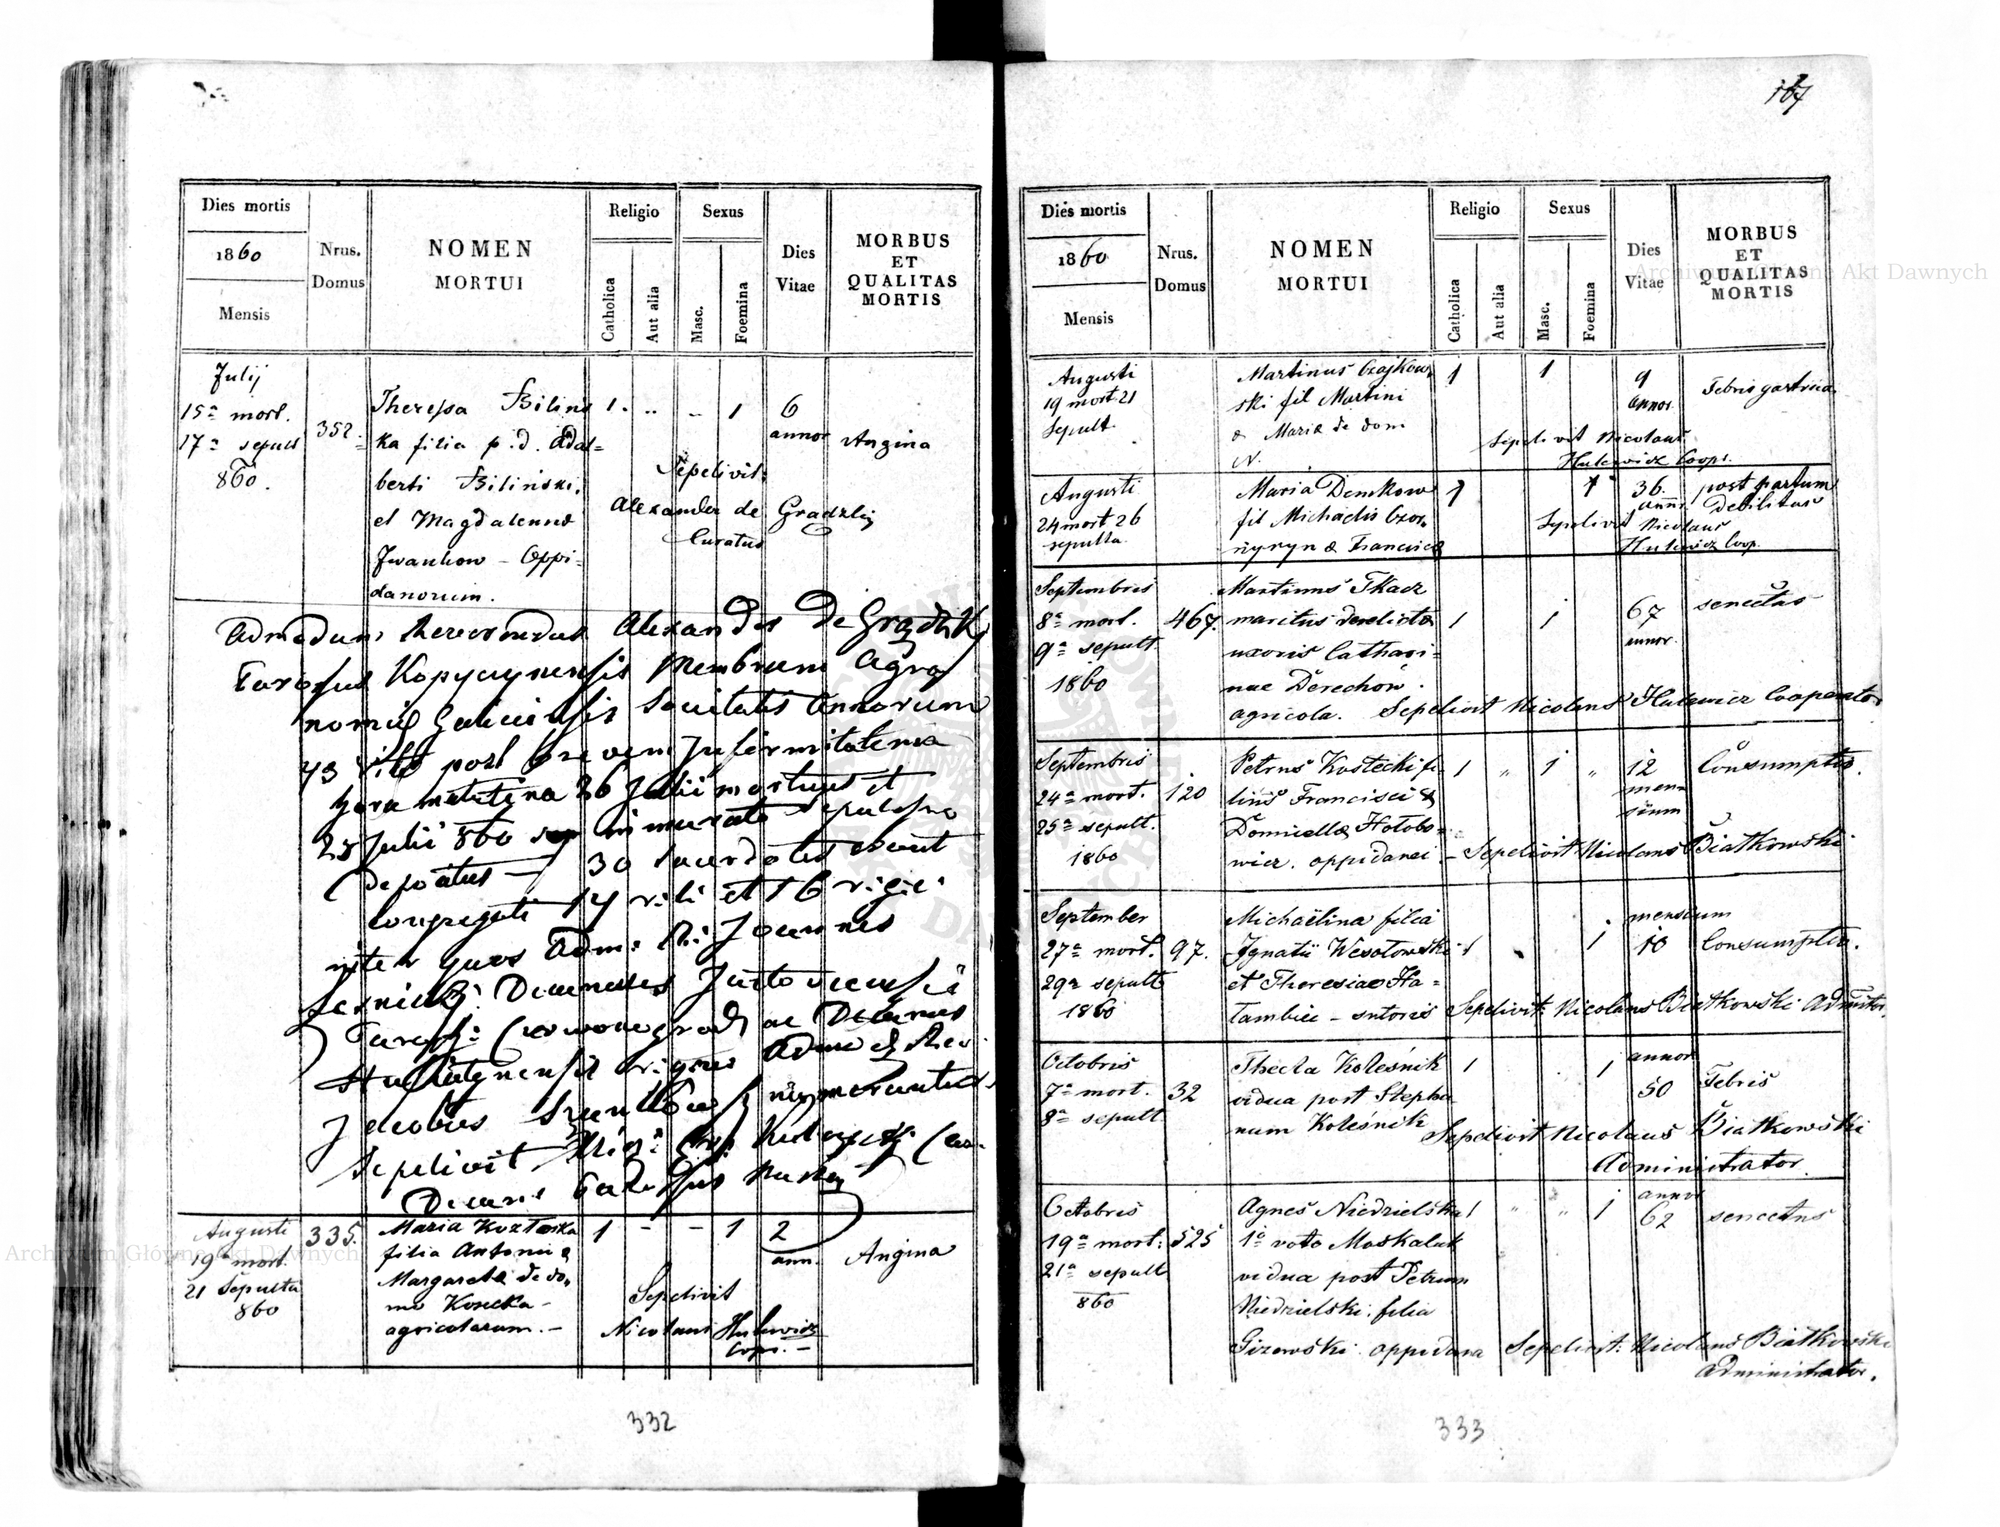 Dies mortis
1860
Mensis
Nrus.
Domus
NOMEN
MORTUI
Religio
Catholica
Aut alia
Sexus
Masc.
Foemina
Dies
Vitae
MORBUS
ET
QUALITAS
MORTIS
Julij
15a mort.
17a sepult
860.
352.
Theressa Bilins
ka filia p. d. Adal=
berti Bilinski,
et Magdalenae
Iwanhow - Oppi=
danorum.
1. .. - 1
6
annor
Angina
Sepelivit:
Alexander de Gradzki
Curatus
Admodum Reverendus Alexander de Gradzki
Kopyczynensis Membrum Agro
nomiae Galiciensis Societatis Annorum
73 vitae post brevem Infirmitatem
hora matutina 26 Julii mortuus et
28 Julii 860 in murato sepulchro
depositus — 30 Sacerdotes erant
Congregati 14 et 16
inter quos Adm: R: Joannes
Decanus
ac Decanus
Jacobus
Sepelivit
Augusti
19a mort.
21 Sepulta
860
335.
Maria Kozłoska
filia Antoni &
Margareta de do,
mo Kosecka -
agricolarum. -
1 - - 1
2
ann.
Angina
Sepelivit
Nicolaus Hulewicz
Coops. -
332
167
Dies mortis
1860
Mensis
Nrus.
Domus
NOMEN
MORTUI
Religio
Catholica
Aut alia
Sexus
Masc.
Foemina
Dies
Vitae
MORBUS
ET
QUALITAS
MORTIS
Augusti
19 mort 21
Sepult.
Martinus Czajkow
ski fil Martini
& Maria de dom
N.
1 1
9
annor.
Febris gastrica
Sepelivit Nicolaus
Hulewicz Coops.
Augusti
24 mort 26
sepulta.
Maria Demkow
fil Michaelis
& Francisca
1 1
36.
ann.
post partum
Debilitas
Sepelivit Nicolaus
Hulewicz Coop.
Septembris
8a mort.
9a sepult
1860
467.
Martinus Tkacz
maritus derelictae
uxoris Cathari=
nae Derechów.
agricola.
1 1
67
annor.
senectus
Sepelivit Nicolaus Hulewicz Cooperator
Septembris
24a mort.
25a sepult.
1860
120
Petrus Kostecki fi
lius Francisci &
Domicella Hołobo=
wicz. oppidanei
1 " 1 "
12
men=
sium
Consumptio.
- Sepelivit Nicolaus Białkowski
September
27a mort.
29a sepult
1860
97.
Michaëlina filia
Ignatii Wesołowski
et Theresiae Ha=
łambiec - sutoris
1 1
mensium
10
Consumptio.
Sepelivit: Nicolaus Białkowski Admitor.
Octobris
7a mort.
8a sepult
32
Thecla Koleśnik
vidua post Stepha
num Koleśnik
1 1
annor
50
Febris
Sepelivit Nicolaus Białkowski
Administrator.
Octobris
19a mort:
21a sepult
860
525
Agnes Niedzielska
1o voto Moskaluk
vidua post Petrum
Niedzielski. filia
Gizowski. oppidana
1 " " 1
annor
62
senectus
Sepelivit: Nicolaus Białkowski
Administrator.
333
Archiwum Główne Akt Dawnych
Archiwum Główne Akt Dawnych